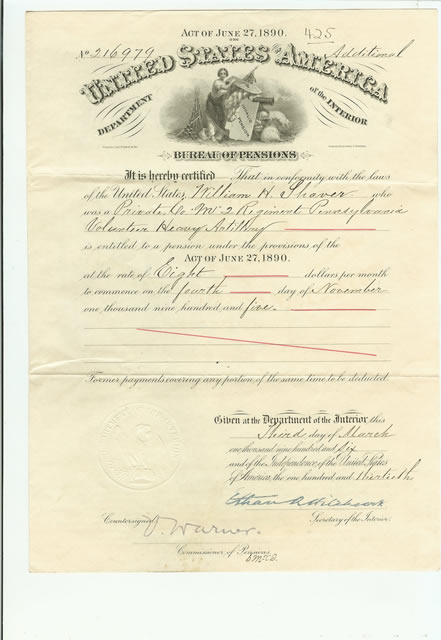 ACT OF JUNE 27, 1890.
425
No 216979
Additional
UNITED STATES OF AMERICA
DEPARTMENT
of the INTERIOR
BUREAU OF PENSIONS
It is hereby certified That in conformity with the laws
of the United States, William H. Shaver who
was a Private, Co. 2 Regiment Pennsylvania
Volunteer Heavy Artillery
is entitled to a pension under the provisions of the
ACT OF JUNE 27, 1890.
at the rate of Eight dollars per month
to commence on the fourth day of November
one thousand nine hundred and five.
Former payments covering any portion of the same time to be deducted.
Given at the Department of the Interior this
Third day of March
one thousand nine hundred and six
and of the Independence of the United States
of America, the one hundred and thirtieth
Ethan A. Hitchcock
Countersigned
Secretary of the Interior.
V. Warner.
Commissioner of Pensions.